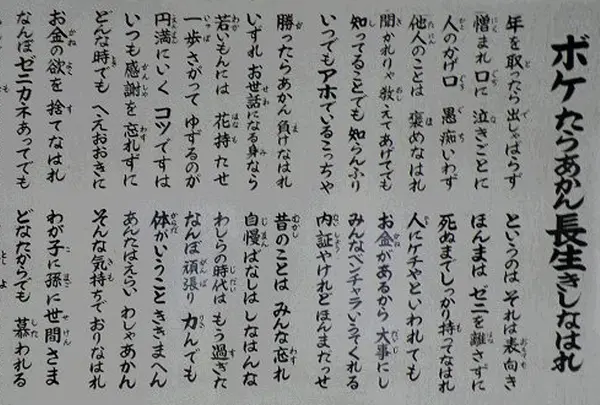 ボケたらあかん長生きしなはれ
年を取ったら出しゃばらず
憎まれ口に 泣きごとに
人のかげ口 愚痴いわず
他人のことは 褒めなはれ
聞かれりゃ 教えてあげても
知ってることでも 知らんふり
いつでもアホでいるこっちゃ
勝ったらあかん 負けなはれ
いずれ お世話になる身なら
若いもんには 花持たせ
一歩さがって ゆずるのが
円満にいく コツですは
いつも感謝を 忘れずに
どんな時でも へえおおきに
お金の欲を 捨てなはれ
なんぼゼニカネあってでも
というのは それは表向き
ほんまは ゼニを離さずに
死ぬまでしっかり持ってなはれ
人にケチやといわれても
お金があるから 大事にし
みんなベンチャラいうてくれる
内証やけれどほんまだっせ
昔のことは みんな忘れ
自慢ばなしは しなはんな
わしらの時代は もう過ぎた
なんぼ頑張り 力んでも
体がいうこと ききまへん
あんたはえらい わしゃあかん
そんな気持ちで おりなはれ
わが子に孫に 世間さま
どなたからでも 慕われる